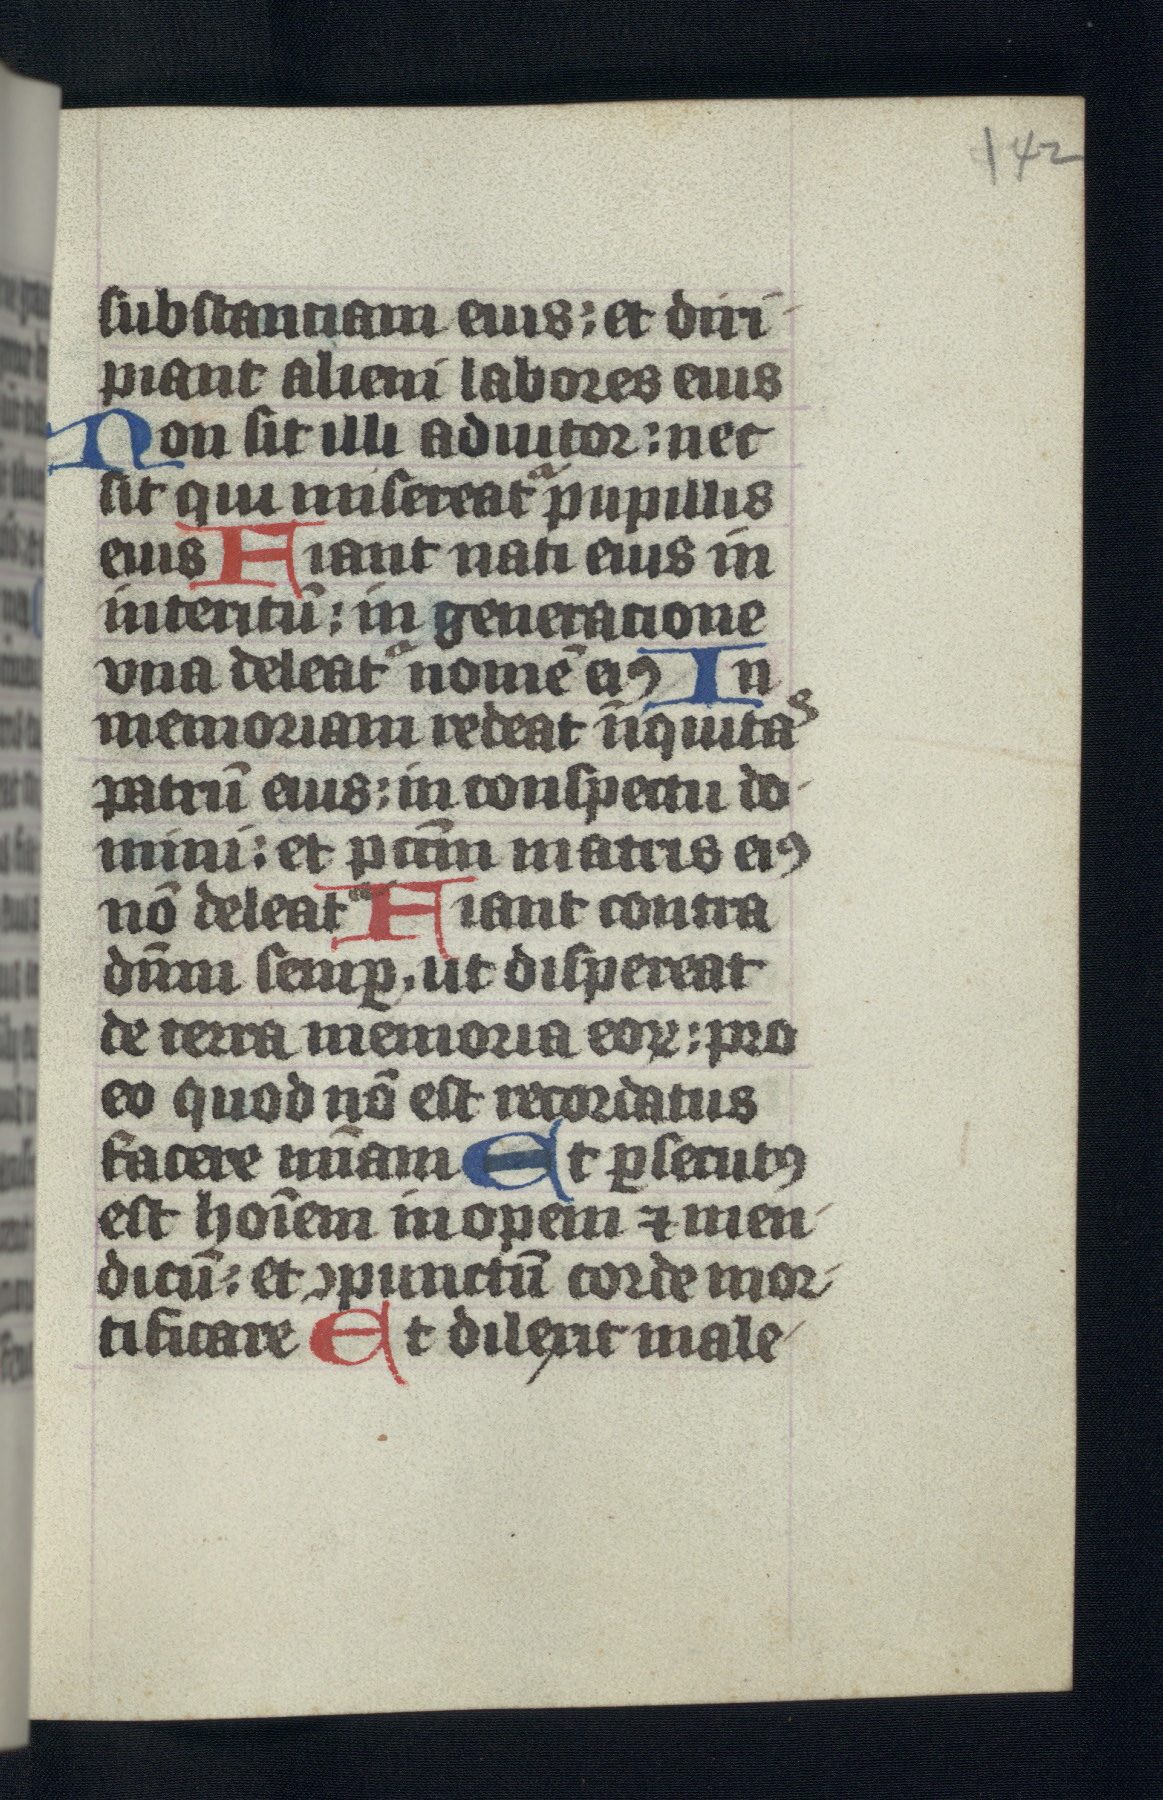 142
substantiam eius: et diri-
piant alieni labores eius
Non sit illi adiutor: nec
sit qui misereatᷓ pupillis
eius Fiant nati eius in
interitū: in generatione
vna deleatᷓ nomē eiꝰ In
memoriam redeat īiquitaˢ
patrū eius: in conspectu do-
mini: et pctm̄ matris eiꝰ
nō deleatᷓ Fiant contra
dn̄m semꝑ. ut dispereat
de terra memoria eoꝝ: pro
eo quod nō est recordatus
facere mīam Et ꝑsecutꝰ
est hoīem inopem ⁊ men-
dicū: et ꝯpunctū corde mor-
tificare Et dilexit male-